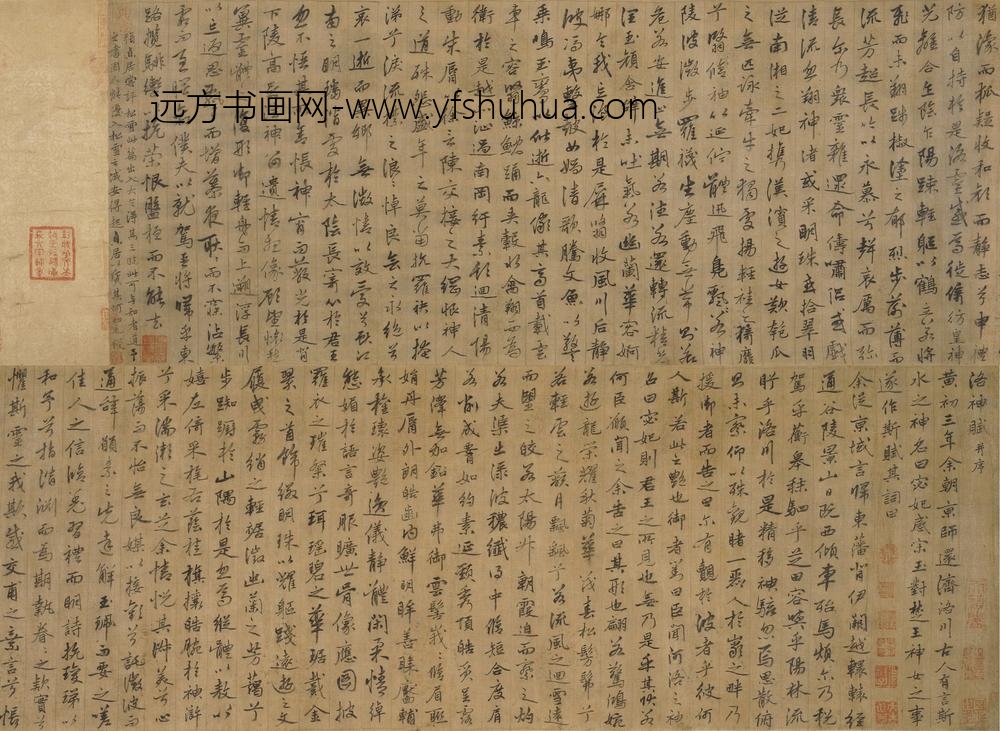 洛神賦 并序
黄初三年余朝京師還濟洛川古人有言斯
水之神名曰宓妃感宋玉對楚王神女之事
遂作斯賦其詞曰
余從京域言歸東藩背伊闕越轘轅經
通谷陵景山日既西傾車殆馬煩爾乃稅
駕乎蘅皋秣駟乎芝田容與乎陽林流
盼乎洛川於是精移神駭忽焉思散俯
則未察仰以殊觀睹一麗人於巖之畔乃
援御者而告之曰爾有覿於彼者乎彼何
人斯若此之艷也御者對曰臣聞河洛之神
名曰宓妃則君王之所見也無乃是乎其狀若
何臣願聞之余告之曰其形也翩若驚鴻婉
若遊龍榮耀秋菊華茂春松髣髴兮
若輕雲之蔽月飄颻兮若流風之迴雪遠
而望之皎若太陽升朝霞迫而察之灼
若夫渠出淥波穠纖得中脩短合度肩
若削成腰如約素延頸秀項皓質呈露
芳澤無加鉛華弗御雲髻峩峩脩眉聯
娟丹脣外朗皓齒內鮮明眸善睞靨輔
承權瓌姿艷逸儀靜體閑柔情綽
態媚於語言奇服曠世骨像應圖披
羅衣之璀粲兮珥瑶碧之華琚戴金
翠之首飾綴明珠以耀軀踐遠遊之文
履曳霧綃之輕裾微幽蘭之芳藹兮
步踟躕於山隅於是忽焉縱體以遨以
嬉左倚采旄右蔭桂旗攘皓腕於神滸
兮采湍瀨之玄芝余情悅其淑美兮心
振蕩而不怡無良媒以接歡兮託微波而
通辭願素之先達解玉珮而要之嗟
佳人之信脩羌習禮而明詩抗瓊珶以
和予兮指潛淵而為期執眷眷之款實兮
懼斯靈之我欺感交甫之棄言兮悵
猶豫而狐疑收和顏而靜志兮申禮
防以自持於是洛靈感焉徙倚彷徨神
光離合乍陰乍陽竦輕軀以鶴立若將
飛而未翔踐椒塗之郁烈步蘅薄而
流芳超長吟以永慕兮聲哀厲而弥
長爾乃衆靈雜遝命儔嘯侶或戲
清流或翔神渚或采明珠或拾翠羽
從南湘之二妃攜漢濱之遊女歎匏瓜
之無匹詠牽牛之獨處揚輕袿之猗靡
兮翳脩袖以延佇體迅飛鳧飄忽若神
陵波微步羅襪生塵動無常則若
危若安進止無期若往若還轉流精光
潤玉顏含辭未吐氣若幽蘭華容婀
娜令我忘飡於是屏翳收風川后靜
波馮夷擊鼓女媧清歌騰文魚以警
乘鳴玉鸞以偕逝六龍儼其齊首載雲
車之容裔鯨鯢踊而夾轂水禽翔而為
衛於是越北沚過南岡紆素領迴清陽
動朱脣以徐言陳交接之大綱恨神人
之道殊怨盛年之莫當抗羅袂以掩
涕兮淚流襟之浪浪悼良會之永絕兮
哀一逝而異鄉無微情以效愛兮獻江
南之明璫雖潛處於太陰長寄心於君王
忽不悟其所舍悵神宵而蔽光於是背
下陵高足往神留遺情想像顧望懷愁
冀靈體之復形御輕舟而上遡浮長川
以忘返思綿綿而增慕夜耿耿而不寐沾繁
霜而至曙命僕夫以就駕吾將歸乎東
路攬騑轡以抗策悵盤桓而不能去
远方书画网-www.yfshuhua.com